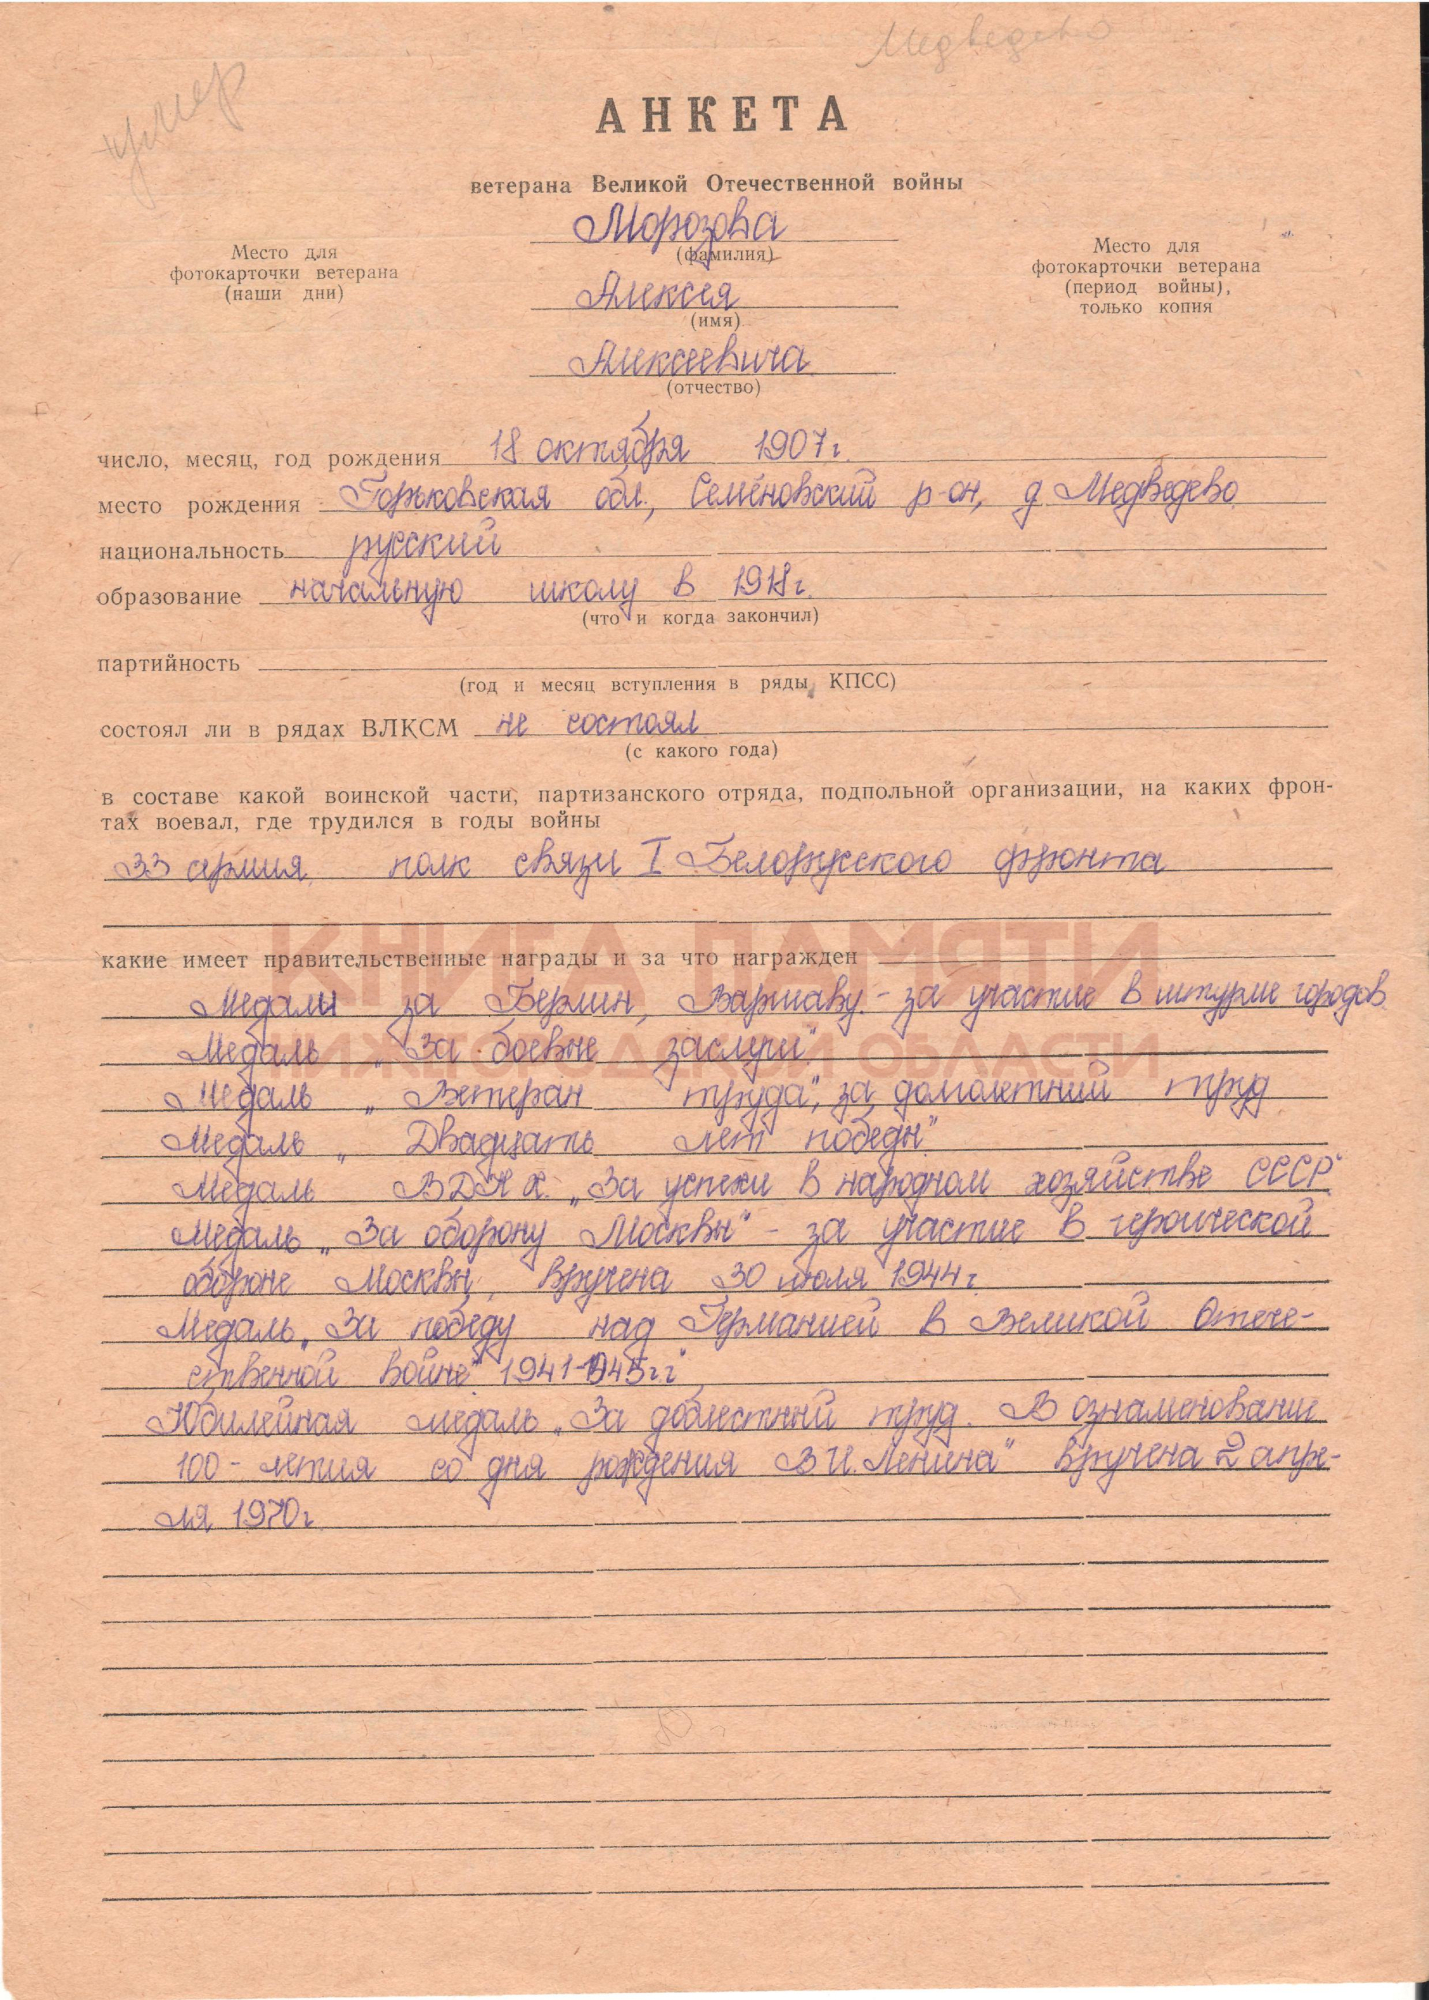 Медведево
умер
АНКЕТА
ветерана Великой Отечественной войны
Морозова
(фамилия)
Место для
фотокарточки ветерана
(наши дни)
Место для
фотокарточки ветерана
(период войны),
только копия
Алексея
(имя)
Алексеевича
(отчество)
число, месяц, год рождения 18 октября 1907 г.
место рождения Горьковская обл., Семёновский р-он, д. Медведево
национальность русский
образование начальную школу в 1918 г.
(что и когда закончил)
партийность
(год и месяц вступления в ряды КПСС)
состоял ли в рядах ВЛКСМ не состоял
(с какого года)
в составе какой воинской части, партизанского отряда, подпольной организации, на каких фрон-
тах воевал, где трудился в годы войны
33 армия полк связи I Белорусского фронта
КНИГА ПАМЯТИ
какие имеет правительственные награды и за что награжден
Медали за Берлин, Варшаву - за участие в штурме городов
НИЖЕГОРОДСКОЙ ОБЛАСТИ
Медаль „За боевые заслуги"
Медаль „Ветеран труда", за долголетний труд
Медаль „Двадцать лет победы"
Медаль ВДНХ „За успехи в народном хозяйстве СССР"
Медаль „За оборону Москвы" - за участие в героической
обороне Москвы, вручена 30 июля 1944 г.
Медаль „За победу над Германией в Великой Отече-
ственной войне" 1941-1945 г.г.
Юбилейная медаль „За доблестный труд. В ознаменование
100-летия со дня рождения В.И. Ленина" вручена 2 апре-
ля 1970 г.